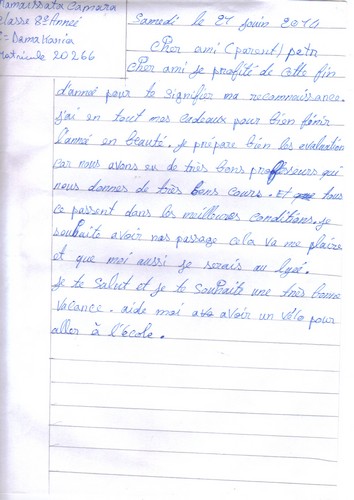 Mamaissata Camara
Classe 8e Année
Damakania
Matricule 20266
Samedi le 21 juin 2014
Cher ami (parent)
Cher ami je profité de cette fin
d'anneé pour te signifier ma reconnaissance.
j'ai eu tout mes cadeaux pour bien finir
l'anné en beauté. je prépare bien les evaluation
car nous avons eu de très bons professeurs qui
nous donnes de très bons cours. Et tous
ce passent dans les meilleures conditions. je
souhaite avoir mas passage cela va me plaire
et que moi aussi je serais au lyeé.
je te Salut et je te Souhaite une très bonne
vacance. aide moi avoir un vélo pour
aller à l'école.